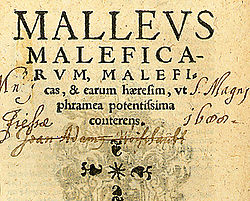 MALLEVS
MALEFICA-
RVM, MALEFI-
cas, & earum hæresim, vt
phramea potentissima
conterens.
S. Magni
Joan Adam